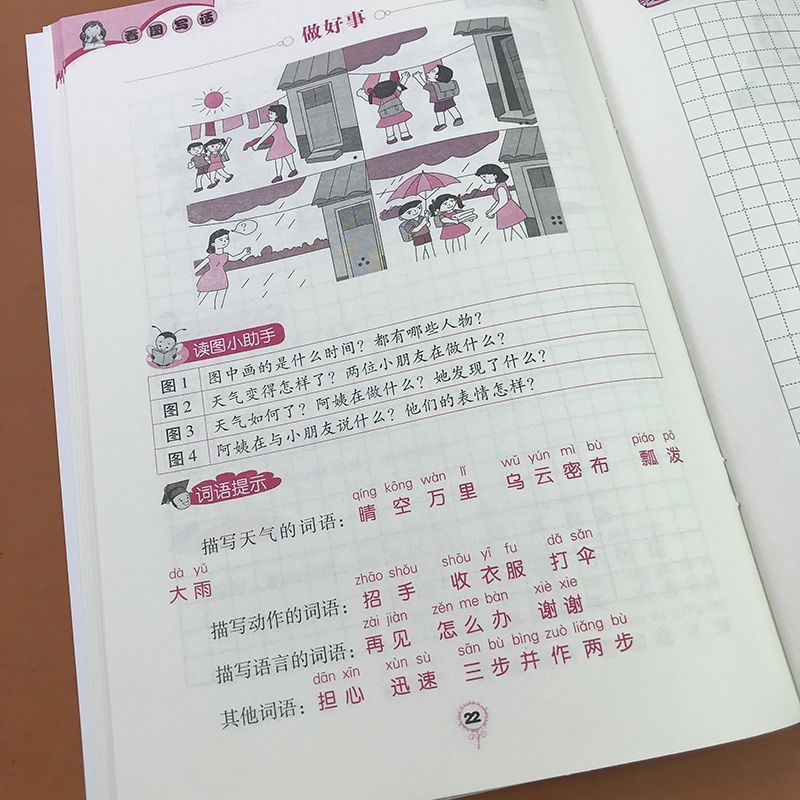 看图写话
做好事
?
读图小助手
图1 图中画的是什么时间？都有哪些人物？
图2 天气变得怎样了？两位小朋友在做什么？
图3 天气如何了？阿姨在做什么？她发现了什么？
图4 阿姨在与小朋友说什么？他们的表情怎样？
词语提示
qíng kōng wàn lǐ wū yún mì bù piáo pō
描写天气的词语：晴空万里 乌云密布 瓢泼
dà yǔ
大雨
zhāo shǒu shōu yī fu dǎ sǎn
描写动作的词语：招手 收衣服 打伞
zài jiàn zěn me bàn xiè xie
描写语言的词语：再见 怎么办 谢谢
dān xīn xùn sù sān bù bìng zuò liǎng bù
其他词语：担心 迅速 三步并作两步
22